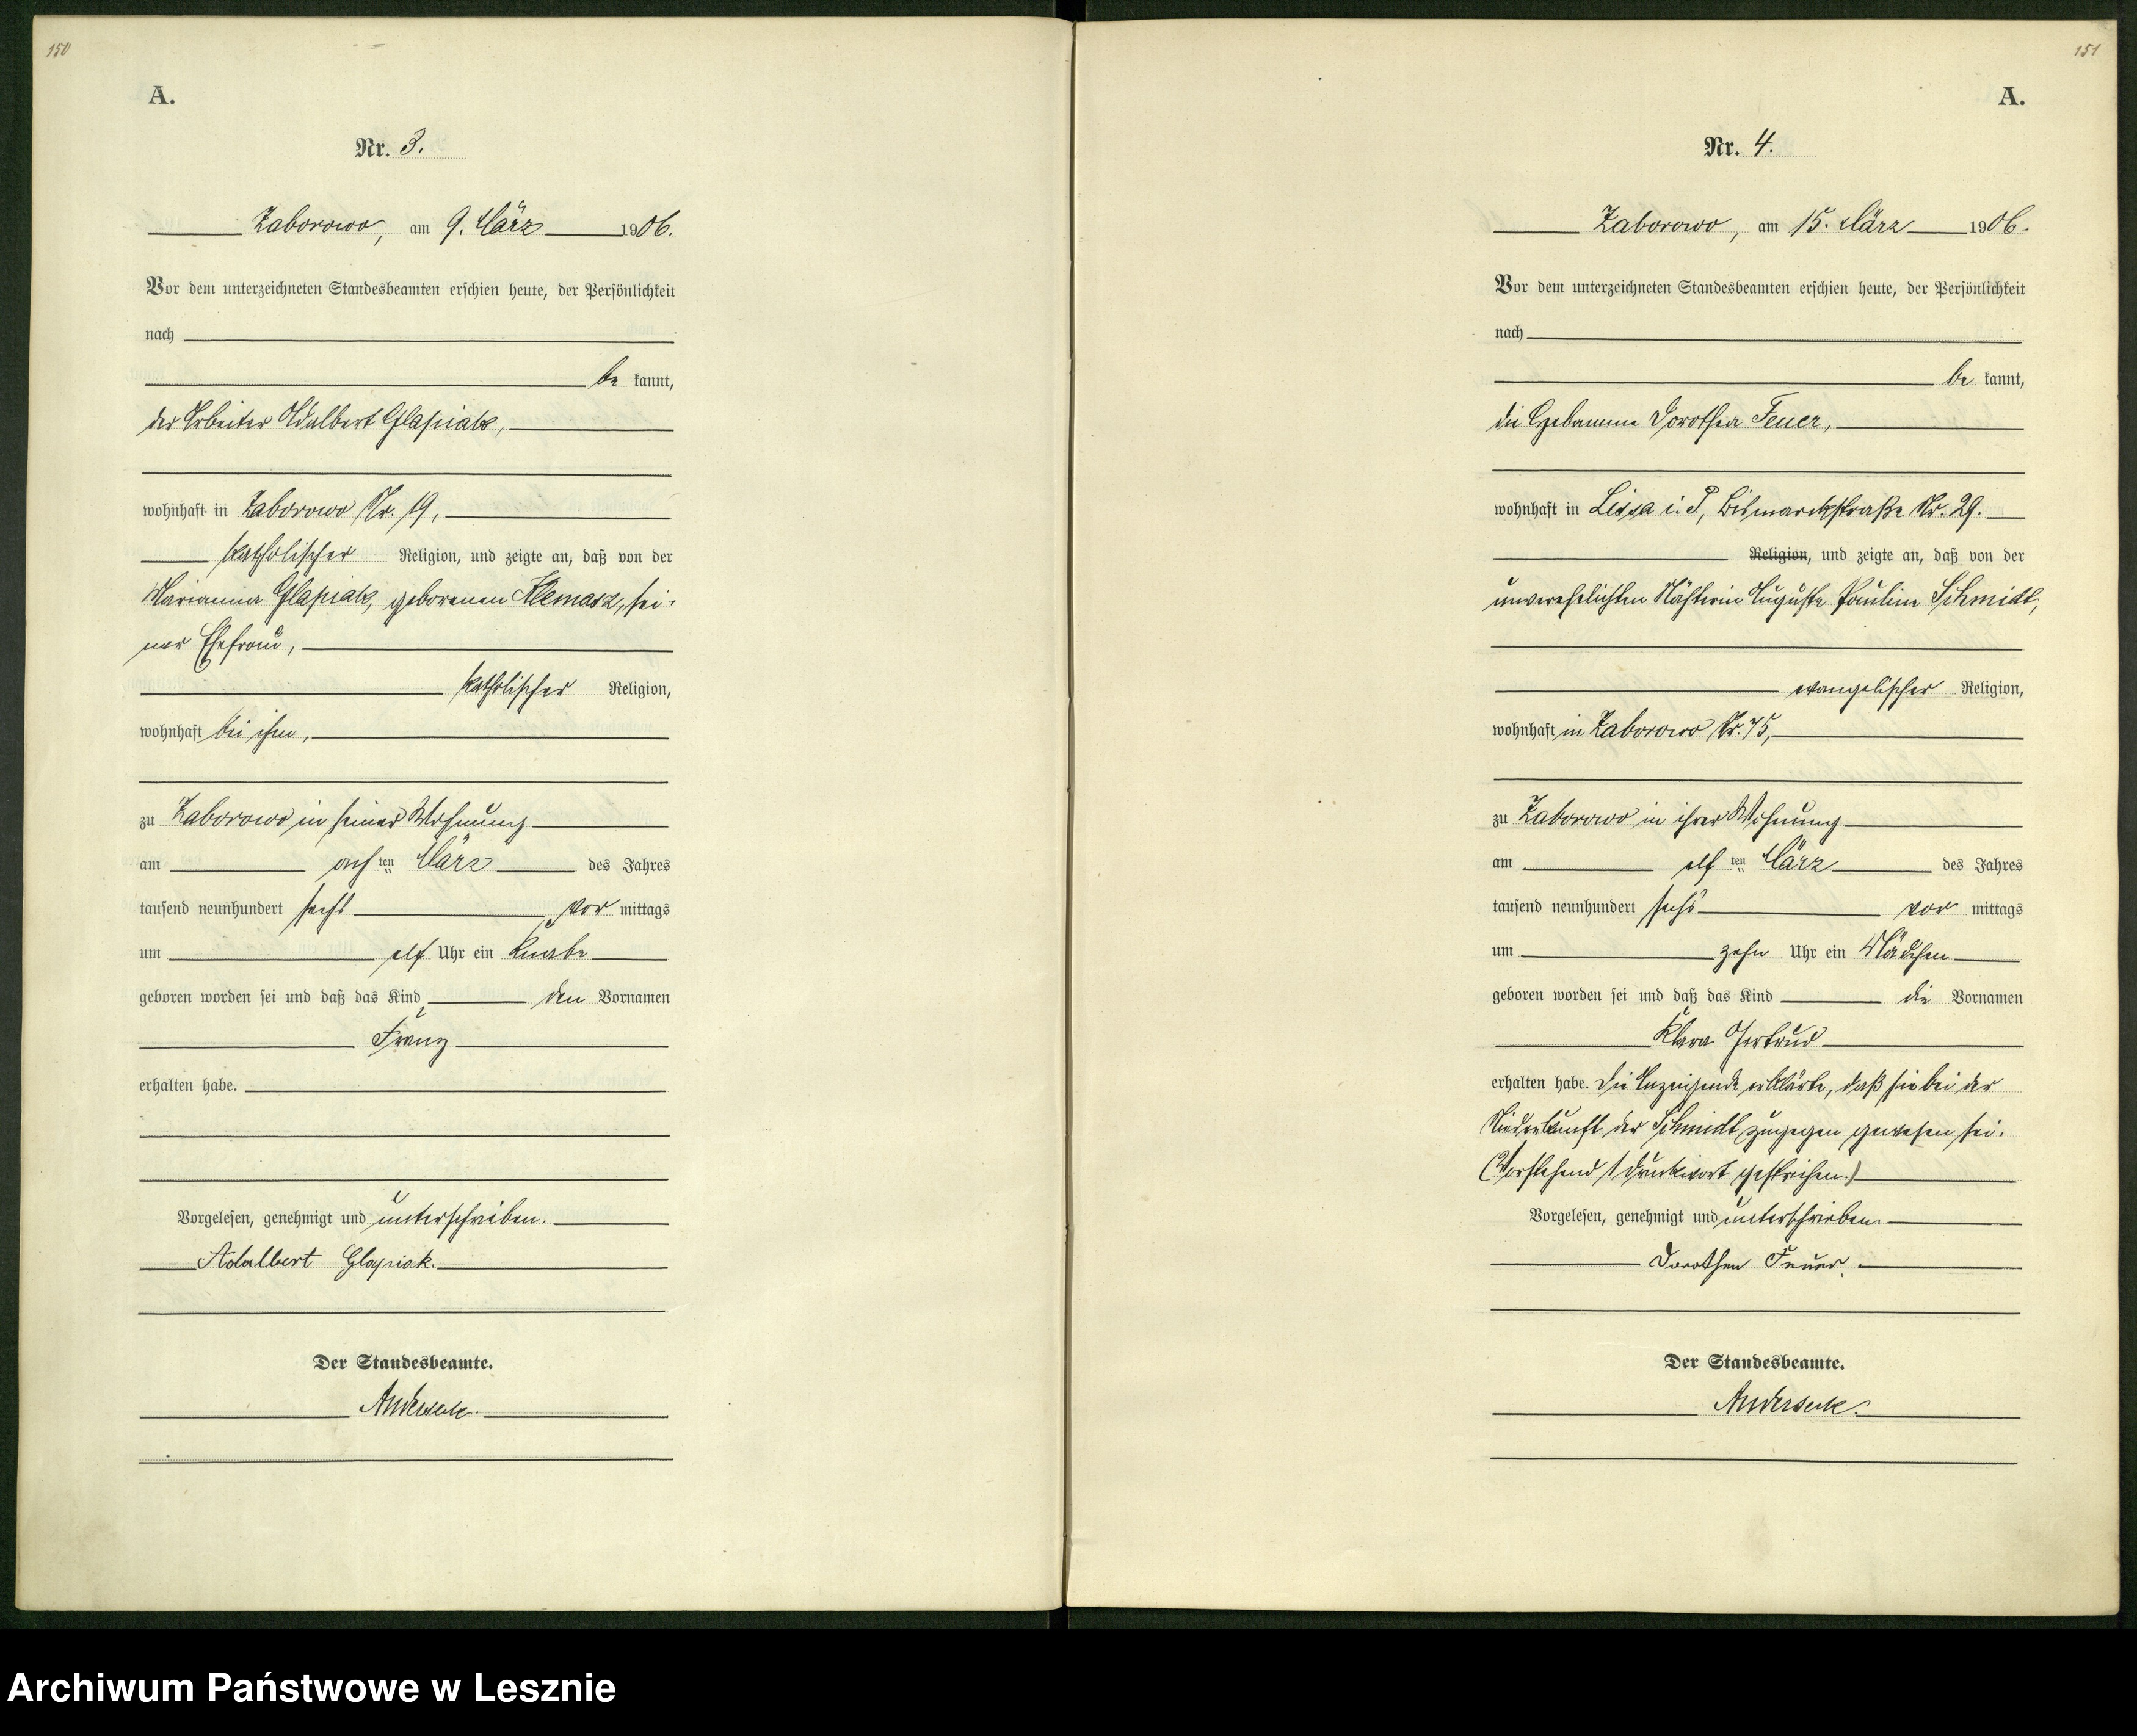 150
A.
Nr. 3.
Zaborowo, am 9. März 1906.
Vor dem unterzeichneten Standesbeamten erschien heute, der Persönlichkeit
nach
be kannt,
der Arbeiter Adalbert Glapiak,
wohnhaft in Zaborowo Nr. 19,
katholischer Religion, und zeigte an, daß von der
Marianna Glapiak, geborenen Klemasz, sei-
ner Ehefrau,
katholischer Religion,
wohnhaft bei ihm,
zu Zaborowo in seiner Wohnung
am achten März des Jahres
tausend neunhundert sechs vor mittags
um elf Uhr ein Knabe
geboren worden sei und daß das Kind den Vornamen
Franz
erhalten habe.
Vorgelesen, genehmigt und unterschrieben.
Adalbert Glapiak.
Der Standesbeamte.
Anderseck.
151
A.
Nr. 4.
Zaborowo, am 15. März 1906.
Vor dem unterzeichneten Standesbeamten erschien heute, der Persönlichkeit
nach
be kannt,
die Hebamme Dorothea Feuer,
wohnhaft in Lissa i. P, Bismarckstraße Nr. 29.
Religion, und zeigte an, daß von der
unverehelichten Nähterin Auguste Pauline Schmidt,
evangelischer Religion,
wohnhaft in Zaborowo Nr. 75,
zu Zaborowo in ihrer Wohnung
am elften März des Jahres
tausend neunhundert sechs vor mittags
um zehn Uhr ein Mädchen
geboren worden sei und daß das Kind die Vornamen
Klara Gertrud
erhalten habe. Die Anzeigende erklärte, daß sie bei der
Niederkunft der Schmidt zugegen gewesen sei.
(Vorstehend 1 Druckwort gestrichen.)
Vorgelesen, genehmigt und unterschrieben.
Dorothea Feuer.
Der Standesbeamte.
Anderseck.
Archiwum Państwowe w Lesznie